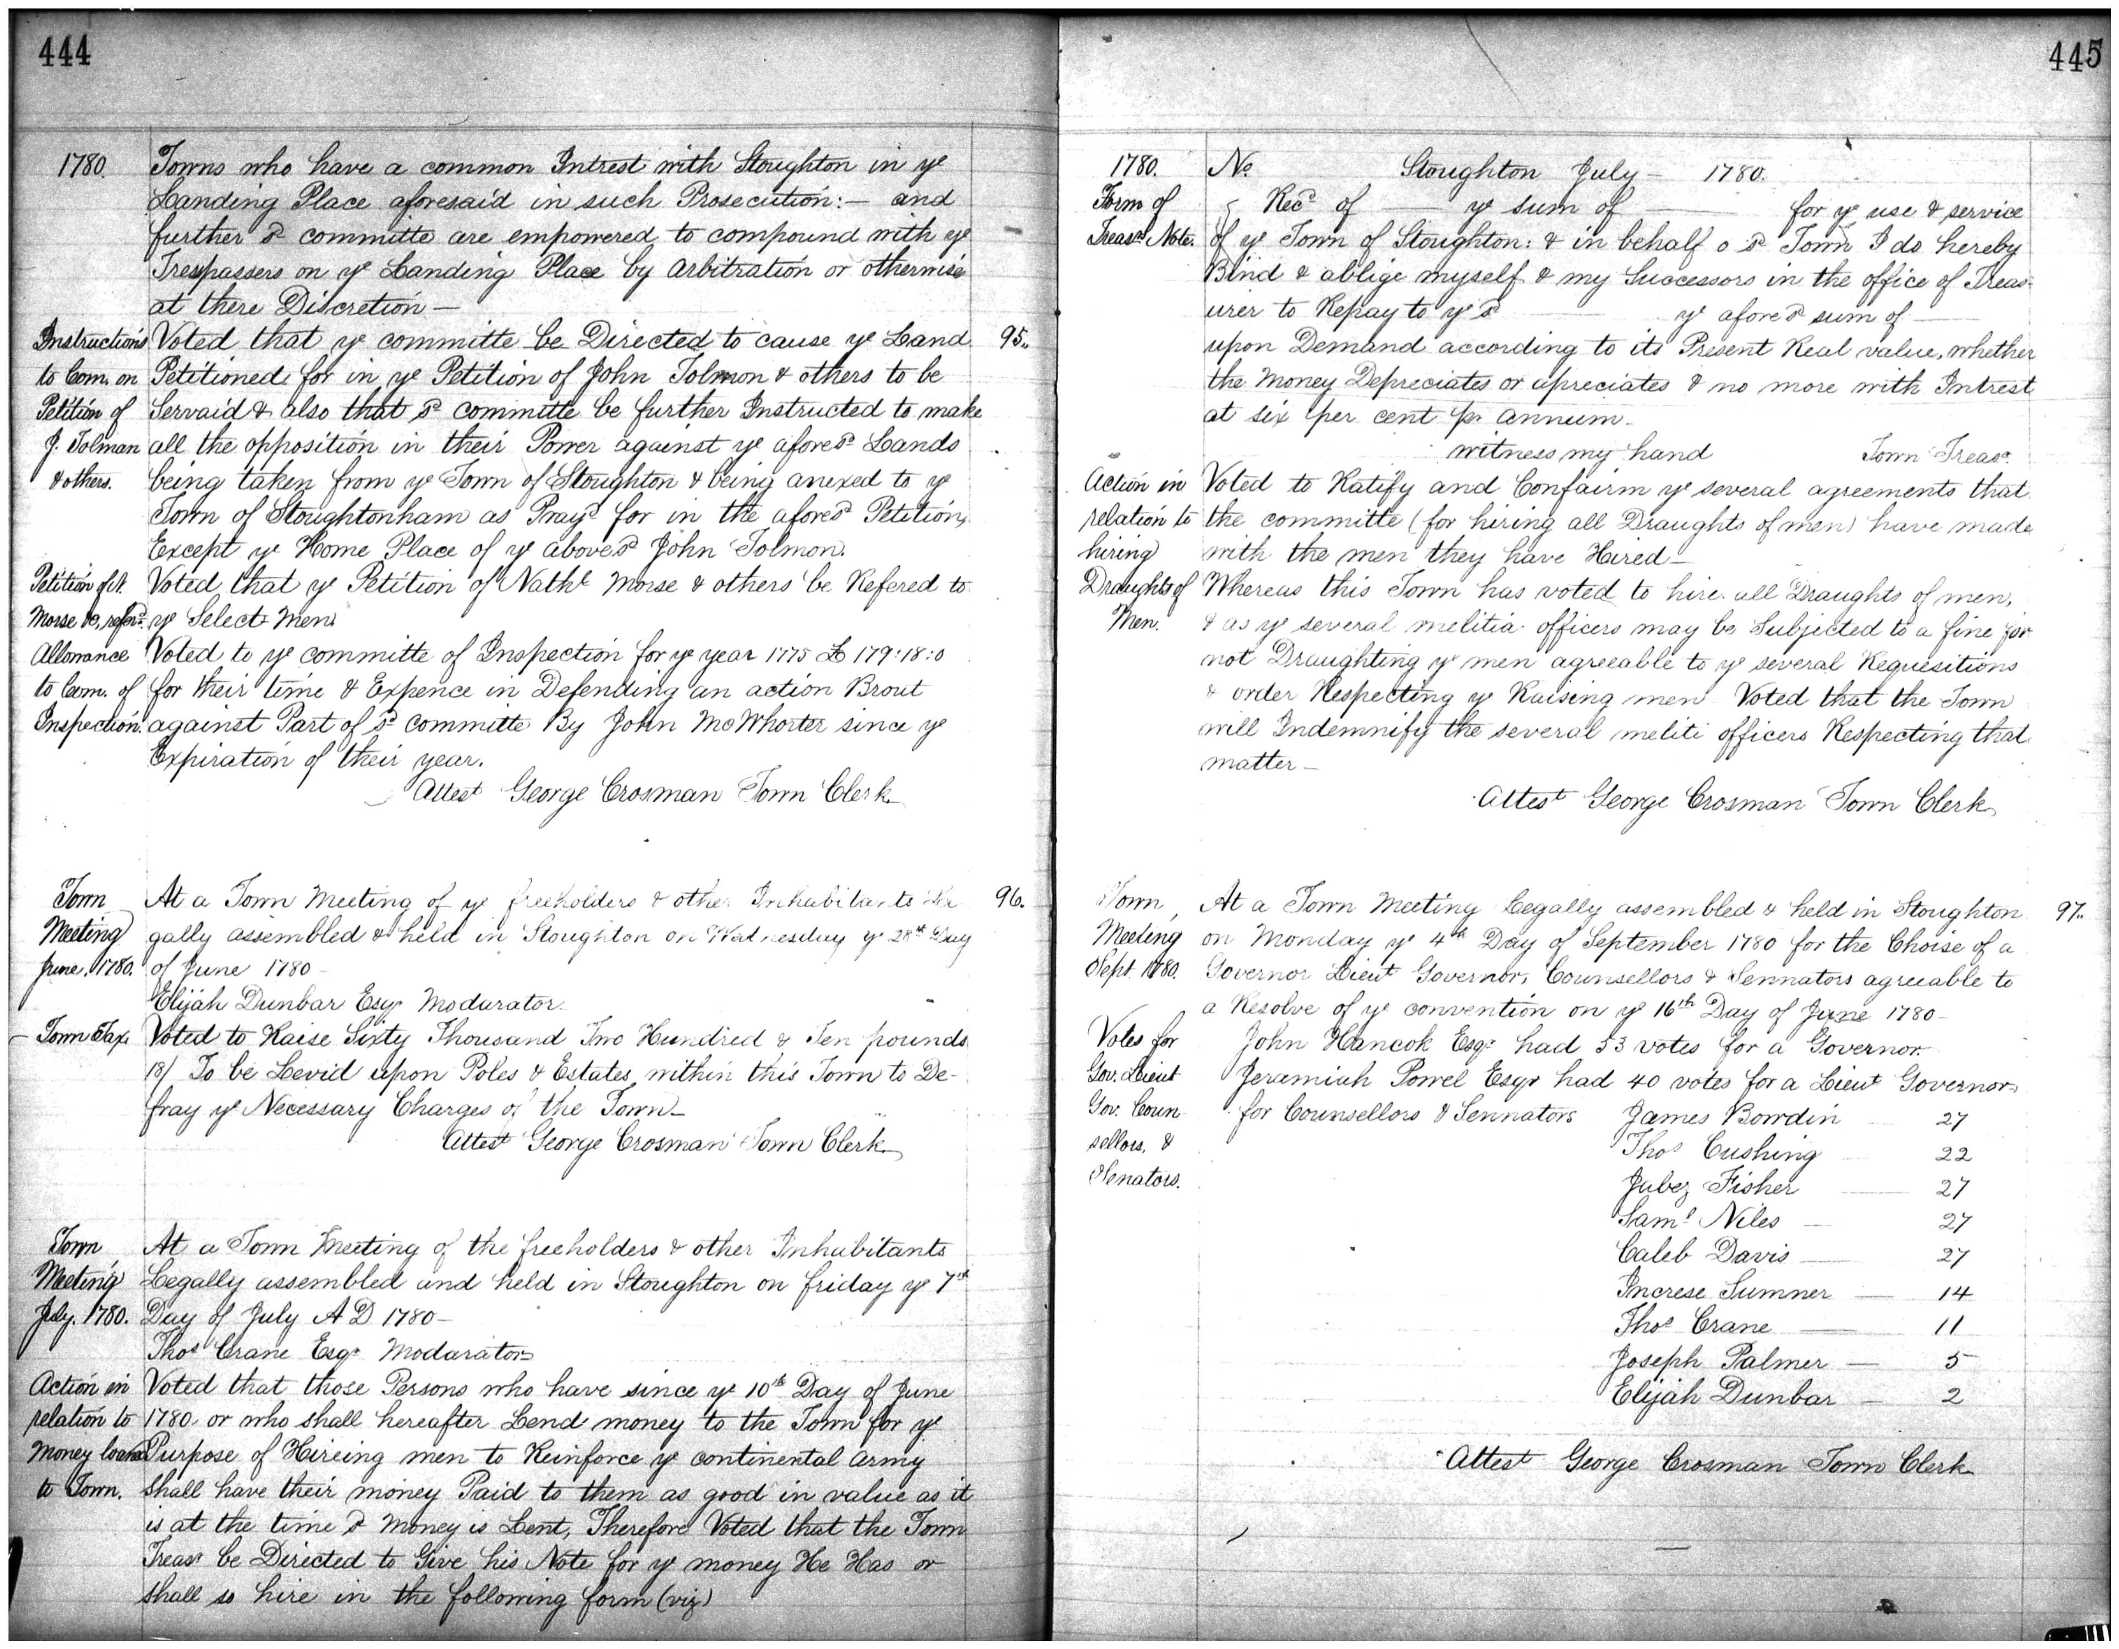 444
1780. Towns who have a common Intrest with Stoughton in ye
Landing Place aforesaid in such Prosecution:— and
further sd committe are empowered to compound with ye
Trespassers on ye Landing Place by Arbitration or otherwise
at there Discretion—
Instructions Voted that ye committe be Directed to cause ye Land 95.
to Com. on Petitioned for in ye Petition of John Tolmon & others to be
Petition of Servaid & also that sd committe be further Instructed to make
J. Tolman all the opposition in their Power against ye aforesd Lands
& others. being taken from ye Town of Stoughton & being anexed to ye
Town of Stoughtonham as Prayd for in the aforesd Petition,
Except ye Home Place of ye abovesd John Tolmon.
Petition of N. Voted that ye Petition of Nathl Morse & others be Refered to
Morse &c, referd. ye Select Men
Allowance Voted to ye committe of Inspection for ye year 1775 £ 179:18:0
to Com. of for their time & Expence in Defending an action Brout
Inspection. against Part of sd committe By John McWhorter since ye
Expiration of their year.
Attest George Crosman Town Clerk
Town At a Town Meeting of ye freeholders & other Inhabitants Le 96.
Meeting gally assembled & held in Stoughton on Wednesday ye 28th Day
June. 1780. of June 1780—
Elijah Dunbar Esqr Modurator.
Town Tax. Voted to Raise Sixty Thousand Two Hundred & Ten pounds
18/ To be Levied upon Poles & Estates within this Town to De-
fray ye Necessary Charges of the Town—
Attest George Crosman Town Clerk
Town At a Town Meeting of the freeholders & other Inhabitants
Meeting Legally assembled and held in Stoughton on friday ye 7th
July. 1780. Day of July A D 1780—
Thos Crane Esqr Modurator
Action in Voted that those Persons who have since ye 10th Day of June
relation to 1780 or who shall hereafter Lend money to the Town for ye
Money loaned Purpose of Hireing men to Reinforce ye continental Army
to Town. shall have their money Paid to them as good in value as it
is at the time sd Money is Lent, Therefore Voted that the Town
Treasr be Directed to Give his Note for ye money He Has or
shall so hire in the following form (viz)
445
1780. No. Stoughton July — 1780.
Form of Recd of — ye sum of — for ye use & service
Treasrs Note. of ye Town of Stoughton: & in behalf o sd Town I do hereby
Bind & ablige myself & my Successors in the office of Treas-
urer to Repay to ye sd — ye aforesd sum of —
upon Demand according to its Present Real value, whether
the Money Depreciates or apreciates & no more with Intrest
at six per cent pr annum.
witness my hand Town Treasr.
Action in Voted to Ratify and Confairm ye several agreements that
relation to the committe (for hiring all Draughts of men) have made
hiring with the men they have Hired—
Draughts of Whereas this Town has voted to hire all Draughts of men,
Men. & as ye several melitia officers may be Subjected to a fine for
not Draughting ye men agreeable to ye several Requesitions
& order Respecting ye Raising men Voted that the Town
will Indemnify the several meliti officers Respecting that
matter—
Attest George Crosman Town Clerk
Town At a Town Meeting Legally assembled & held in Stoughton 97.
Meeting on Monday ye 4th Day of September 1780 for the Choise of a
Sept. 1780. Governor Lieut Governor, Counsellors & Sennators agreeable to
a Resolve of ye convention on ye 16th Day of June 1780—
Votes for John Hancok Esqr had 53 votes for a Governor.
Gov. Lieut Jeramiah Powel Esqr had 40 votes for a Lieut Governor
Gov. Coun for Counsellors & Sennators James Bowdin 27
sellors, & Thos Cushing 22
Senators. Jubez Fisher 27
Saml Niles — 27
Caleb Davis — 27
Increse Sumner — 14
Thos Crane — 11
Joseph Palmer — 5
Elijah Dunbar — 2
Attest George Crosman Town Clerk